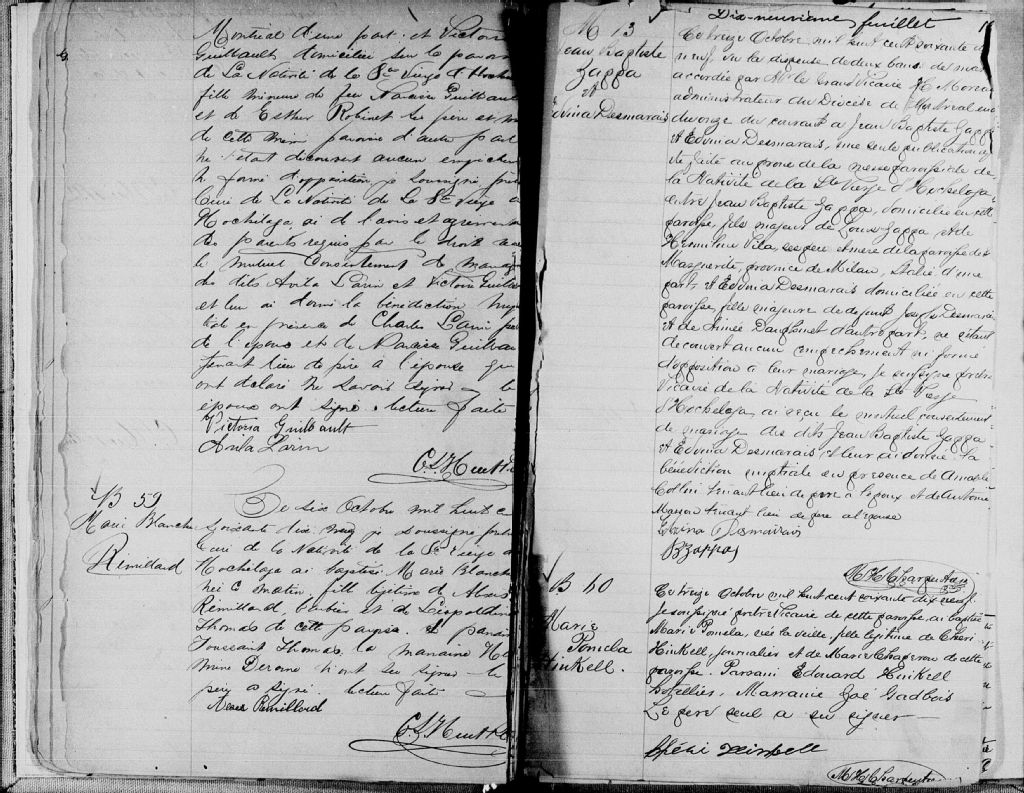 Montréal d'une part et Victoria
Guilbault domiciliée sur la paroisse
de La Nativité de la Ste Vierge d'Hochelaga
fille mineure de feu Narcisse Guilbault
et de Esther Robinet les père et mère
de cette même paroisse d'autre part
ne s'étant découvert aucun empêchement
ni formé d'opposition je soussigné prêtre
Curé de La Nativité de La Ste Vierge
Hochelaga, ai de l'avis et agrément
des parents requis par le droit
le mutuel Consentement de mariage
des dits Avila Larin et Victoria Guilbault
et leur ai donné la bénédiction nup
tiale en présence de Charles Larin père
de l'époux et de Narcisse Guilbault
tenant lieu de père à l'épouse qui
ont déclaré ne savoir signer - les
époux ont signé. Lecture faite
Victoria Guilbault
Avila Larin
B 59
Marie Blanche
Rémillard
Le six Octobre mil huit c
soixante dix neuf je soussigné prêtre
Curé de la Nativité de la Ste Vierge
Hochelaga ai baptisé Marie Blanche
née ce matin, fille légitime de
Rémillard et de Léopoldine
Thomas de cette paroisse. Le parrain
Toussaint Thomas la marraine
Derome n'ont su signer - le
père a signé. Lecture faite
Rémillard
Dix-neuvième feuillet
M 13
Jean Baptiste
Zappa
et
Edvina Desmarais
Ce treize Octobre mil huit cent soixante dix
neuf, vu la dispense de deux bans de mariage
accordée par Mr le Grand Vicaire H Moreau
administrateur du Diocèse de Montréal en date
du onze du courant à Jean Baptiste Zappa
et Edvina Desmarais, une seule publication ayant
été faite au prône de la messe paroissiale de
la Nativité de la Ste Vierge d'Hochelaga
entre Jean Baptiste Zappa, domicilié en cette
paroisse, fils majeur de Louis Zappa, et de
Vila, ses père et mère de la paroisse de Ste
Marguerite, province de Milan, Italie d'une
part, et Edvina Desmarais domiciliée en cette
paroisse, fille majeure de défunt Joseph Desmarais
et de Aimée Dauphinet d'autre part, ne s'étant
découvert aucun empêchement ni formé
d'opposition à leur mariage, je soussigné prêtre
Vicaire de la Nativité de la Ste Vierge
d'Hochelaga, ai reçu le mutuel consentement
de mariage des dits Jean Baptiste Zappa
et Edvina Desmarais, et leur ai donné la
bénédiction nuptiale en présence de Amable
tenant lieu de père à l'époux et de Antoine
Masson tenant lieu de père à l'épouse
Desmarais
B Zappa
M H A Charpentier
B 60
Marie
Pomela
Hinkell.
Ce treize Octobre mil huit cent soixante dix neuf.
Je soussigné prêtre Vicaire de cette paroisse, ai baptisé
Marie Pomela, née la veille, fille légitime de Chéri
Hinkell, journalier et de Marie Chaperon de cette
paroisse. Parrain Edouard Hinkell
Marraine Zoé Gadbois
Le père seul a su signer
Hinkell
M H A Charpentier